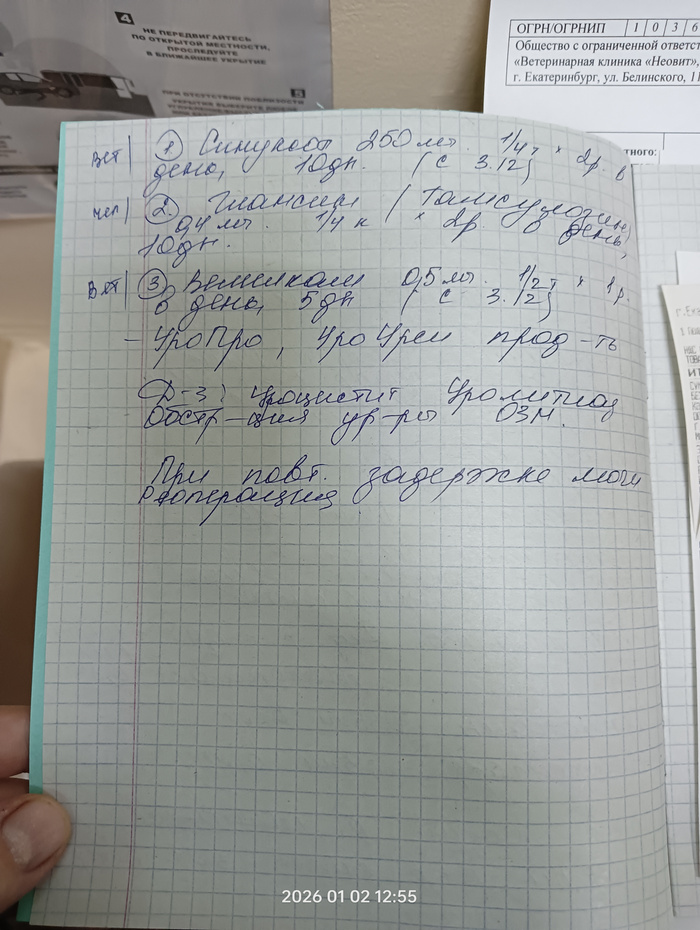 4
НЕ ПЕРЕДВИГАЙТЕСЬ
ПО ОТКРЫТОЙ МЕСТНОСТИ,
ПРОСЛЕДУЙТЕ
В БЛИЖАЙШЕЕ УКРЫТИЕ
5
ПРИ ОТСУТСТВИИ ПОБЛИЗОСТИ
ОГРН/ОГРНИП 1 0 3 6
Общество с ограниченной ответст
«Ветеринарная клиника «Неовит»,
г. Екатеринбург, ул. Белинского, 1
тного:
вет| 1 Синулокс 250 мг. 1/4 т × 2р. в
день, 10дн. (с 3.12)
чел| 2. (Тамсулозин)
0,4 мг. 1/4 к × 2р. в день,
10дн.
вет| 3 0,5 мг. 1/2 т × 1 р.
в день, 5дн (с 3.12)
- УроПро, УроУрси прод-ть
Д-з: Уроцистит Уролитиаз
Обстр-ция ур-ры ОЗМ.
При повт. задержке мочи
операция
2026 01 02 12:55